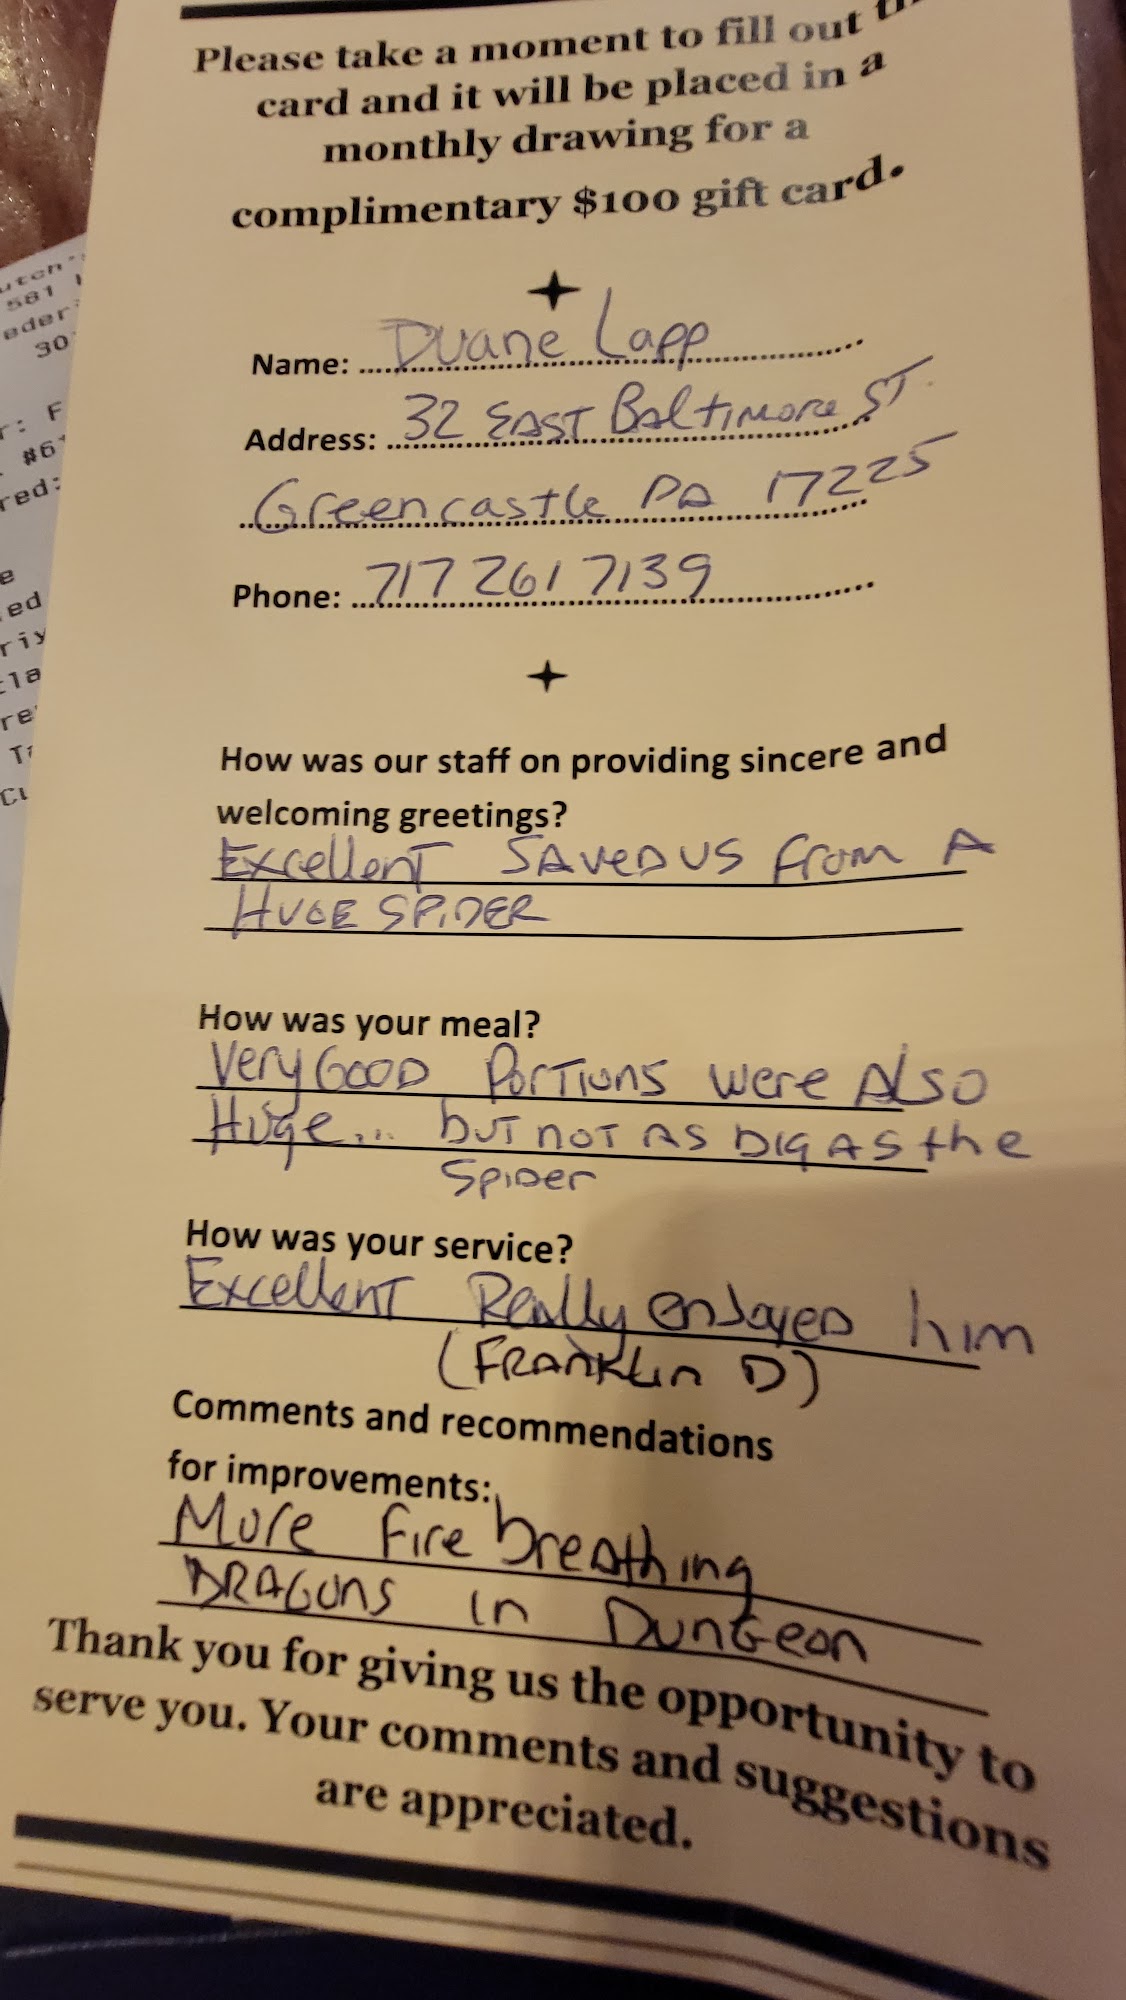 Please take a moment to fill out
card and it will be placed in a
monthly drawing for a
complimentary $100 gift card.
Name: Duane Lapp
Address: 32 EAST Baltimore ST.
Greencastle PA 17225
Phone: 717 261 7139
How was our staff on providing sincere and
welcoming greetings?
Excellent SAVED US From A
HUGE SPIDER
How was your meal?
Very GOOD PORTIONS were Also
Huge... but not as big as the
Spider
How was your service?
Excellent Really enjoyed him
(Franklin D)
Comments and recommendations
for improvements:
More Fire breathing
DRAGONS in Dungeon
Thank you for giving us the opportunity to
serve you. Your comments and suggestions
are appreciated.
581
30
#6